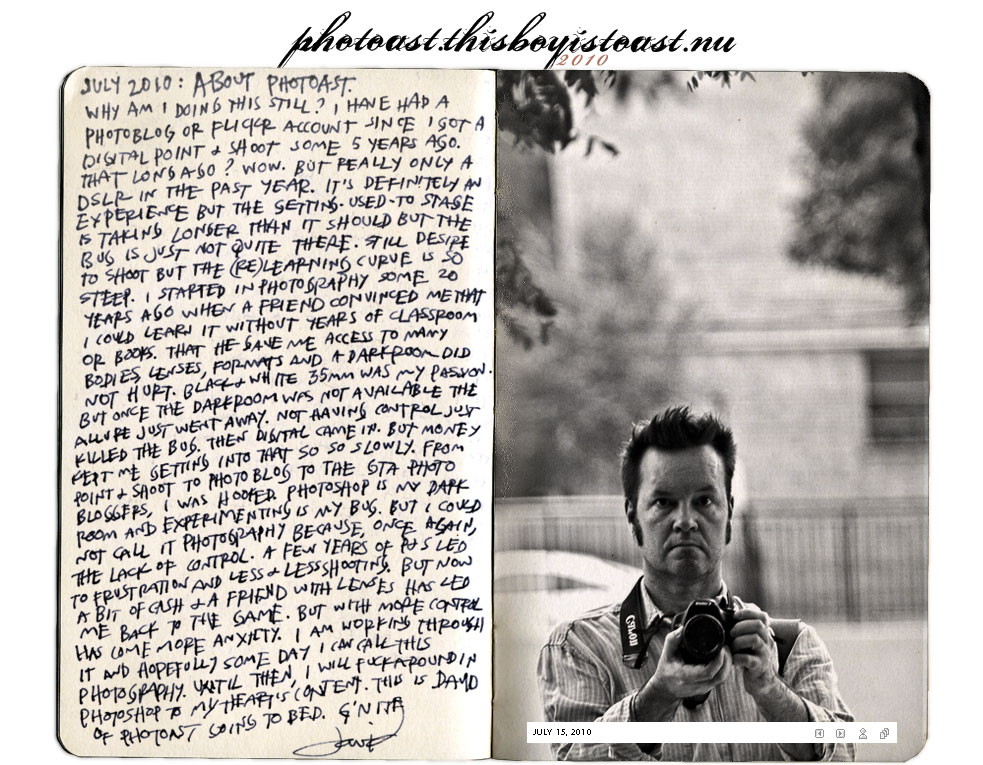 photoast.thisboyistoast.nu
2010
JULY 2010: ABOUT PHOTOAST.
WHY AM I DOING THIS STILL? I HAVE HAD A
PHOTOBLOG OR FLICKR ACCOUNT SINCE I GOT A
DIGITAL POINT & SHOOT SOME 5 YEARS AGO.
THAT LONG AGO? WOW. BUT REALLY ONLY A
DSLR IN THE PAST YEAR. IT'S DEFINITELY AN
EXPERIENCE BUT THE GETTING-USED-TO STAGE
IS TAKING LONGER THAN IT SHOULD BUT THE
BUG IS JUST NOT QUITE THERE. STILL DESIRE
TO SHOOT BUT THE (RE)LEARNING CURVE IS SO
STEEP. I STARTED IN PHOTOGRAPHY SOME 20
YEARS AGO WHEN A FRIEND CONVINCED ME THAT
I COULD LEARN IT WITHOUT YEARS OF CLASSROOM
OR BOOKS. THAT HE GAVE ME ACCESS TO MANY
BODIES, LENSES, FORMATS AND A DARKROOM DID
NOT HURT. BLACK & WHITE 35mm WAS MY PASSION.
BUT ONCE THE DARKROOM WAS NOT AVAILABLE THE
ALLURE JUST WENT AWAY. NOT HAVING CONTROL JUST
KILLED THE BUG. THEN DIGITAL CAME IN. BUT MONEY
KEPT ME GETTING INTO THAT SO SO SLOWLY. FROM
POINT & SHOOT TO PHOTOBLOG TO THE GTA PHOTO
BLOGGERS, I WAS HOOKED. PHOTOSHOP IS MY DARK
ROOM AND EXPERIMENTING IS MY BUG. BUT I COULD
NOT CALL IT PHOTOGRAPHY BECAUSE, ONCE AGAIN,
THE LACK OF CONTROL. A FEW YEARS OF P&S LED
TO FRUSTRATION AND LESS & LESS SHOOTING. BUT NOW
A BIT OF CASH & A FRIEND WITH LENSES HAS LED
ME BACK TO THE GAME. BUT WITH MORE CONTROL
HAS COME MORE ANXIETY. I AM WORKING THROUGH
IT AND HOPEFULLY SOME DAY I CAN CALL THIS
PHOTOGRAPHY. UNTIL THEN, I WILL FUCK AROUND IN
PHOTOSHOP TO MY HEART'S CONTENT. THIS IS DAVID
OF PHOTOAST GOING TO BED. G'NITE
Canon
JULY 15, 2010